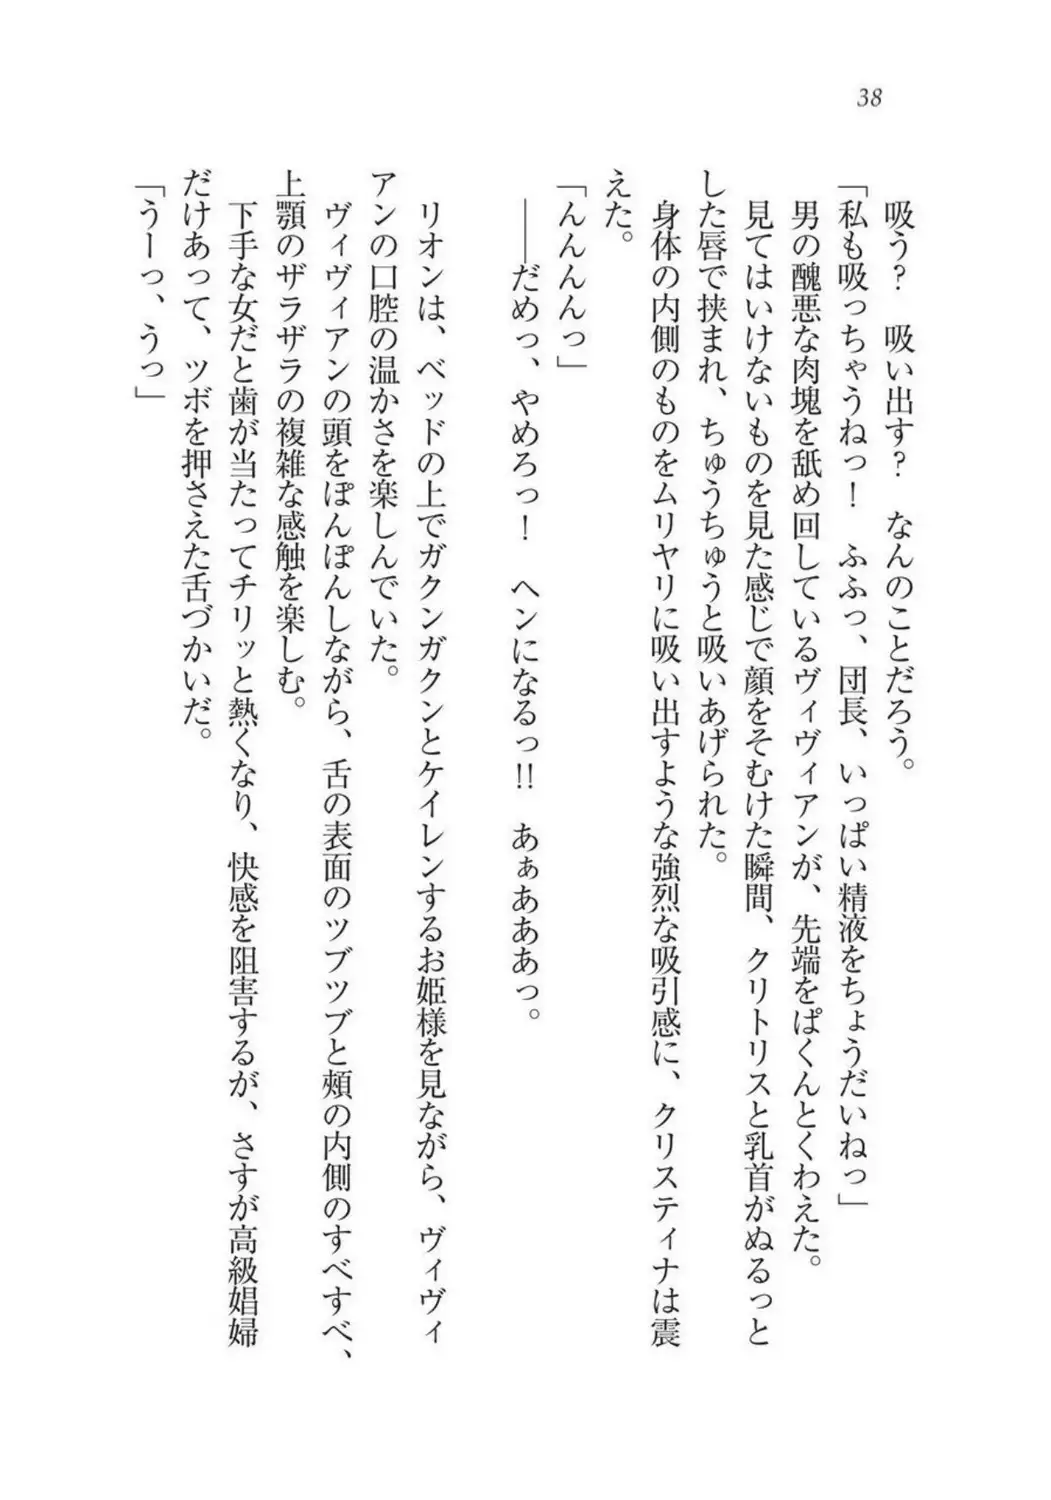 38
吸う？　吸い出す？　なんのことだろう。
「私も吸っちゃうねっ！　ふふっ、団長、いっぱい精液をちょうだいねっ」
男の醜悪な肉塊を舐め回しているヴィヴィアンが、先端をぱくんとくわえた。
見てはいけないものを見た感じで顔をそむけた瞬間、クリトリスと乳首がぬるっと
した唇で挟まれ、ちゅうちゅうと吸いあげられた。
身体の内側のものをムリヤリに吸い出すような強烈な吸引感に、クリスティナは震
えた。
「んんんんっ」
――だめっ、やめろっ！　ヘンになるっ!!　あぁあああっ。
リオンは、ベッドの上でガクンガクンとケイレンするお姫様を見ながら、ヴィヴィ
アンの口腔の温かさを楽しんでいた。
ヴィヴィアンの頭をぽんぽんしながら、舌の表面のツブツブと頬の内側のすべすべ、
上顎のザラザラの複雑な感触を楽しむ。
下手な女だと歯が当たってチリッと熱くなり、快感を阻害するが、さすが高級娼婦
だけあって、ツボを押さえた舌づかいだ。
「うーっ、うっ」